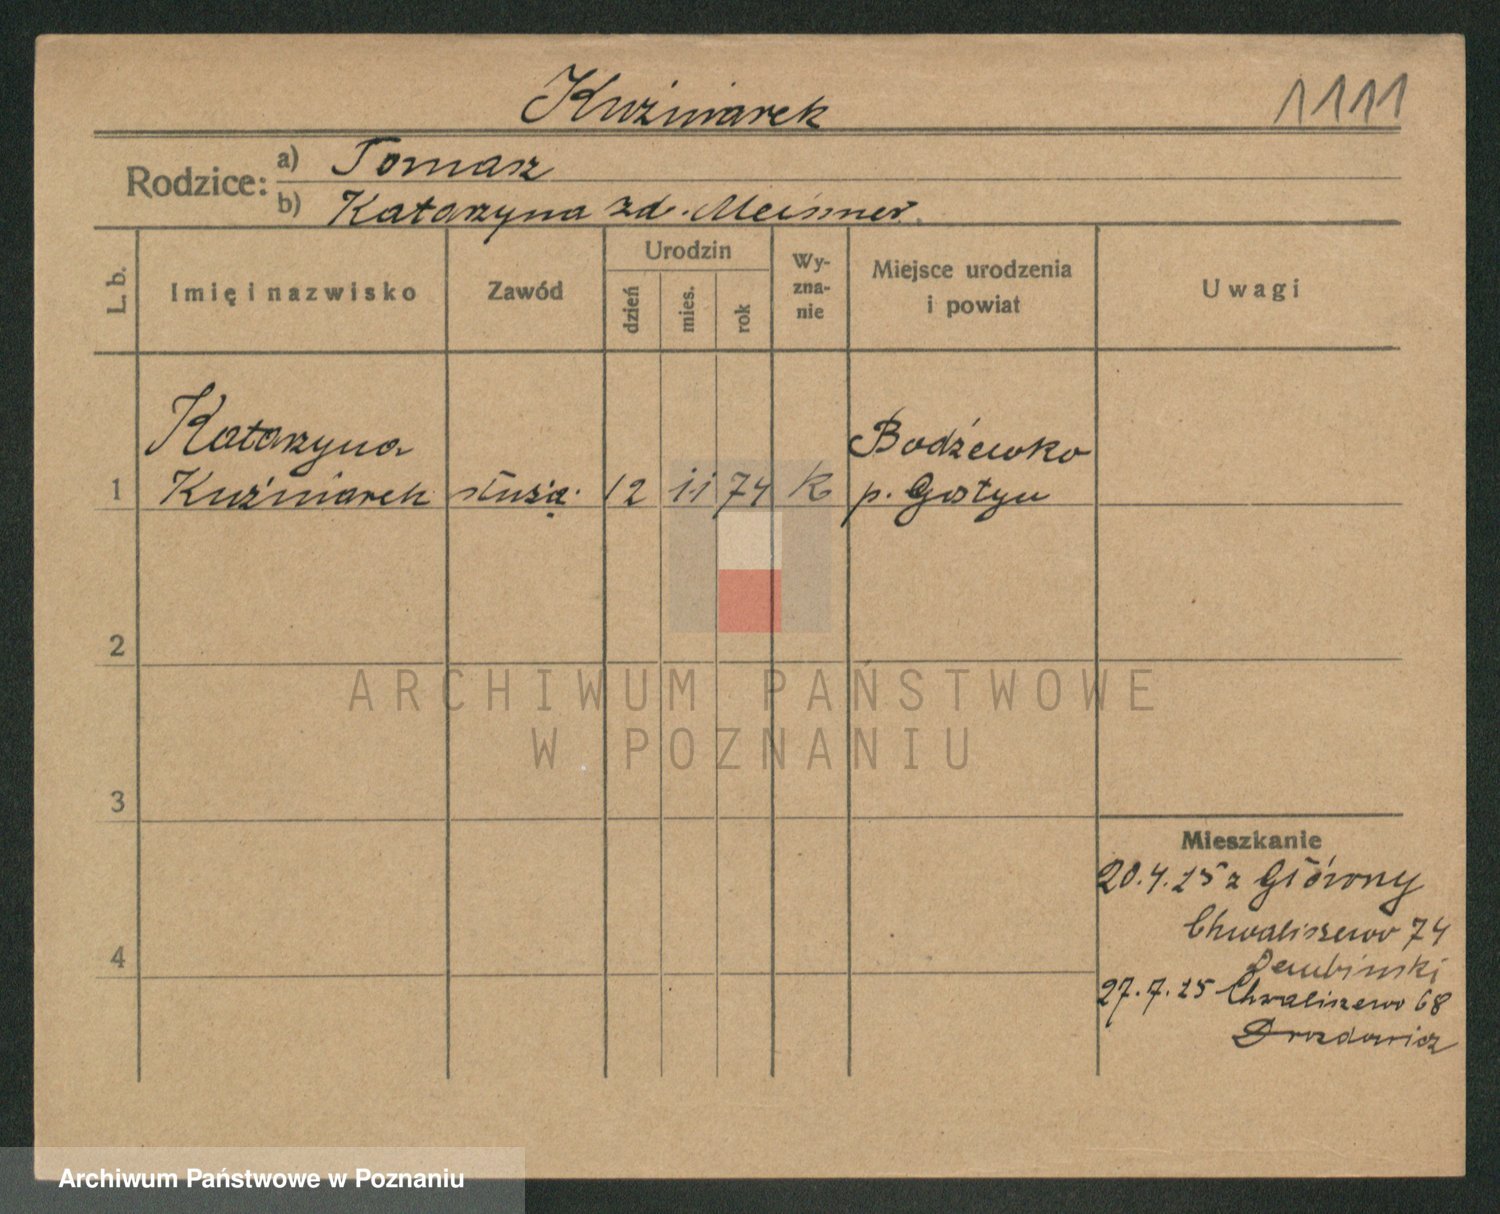 Kuźniarek
1111
Rodzice: a) Tomasz
b) Katarzyna zd. Meissner.
L. b.
Imię i nazwisko
Zawód
Urodzin
dzień
mies.
rok
Wy-
zna-
nie
Miejsce urodzenia
i powiat
Uwagi
Katarzyna
Bodżewko
1 Kuźniarek służą. 12 11 74 k p. Gostyń
2
3
4
Mieszkanie
20.4.25 z Główny
Chwaliszewo 74
Dembinski
27.7.25 Chwaliszewo 68
Drozdowicz
ARCHIWUM PAŃSTWOWE
W POZNANIU
Archiwum Państwowe w Poznaniu